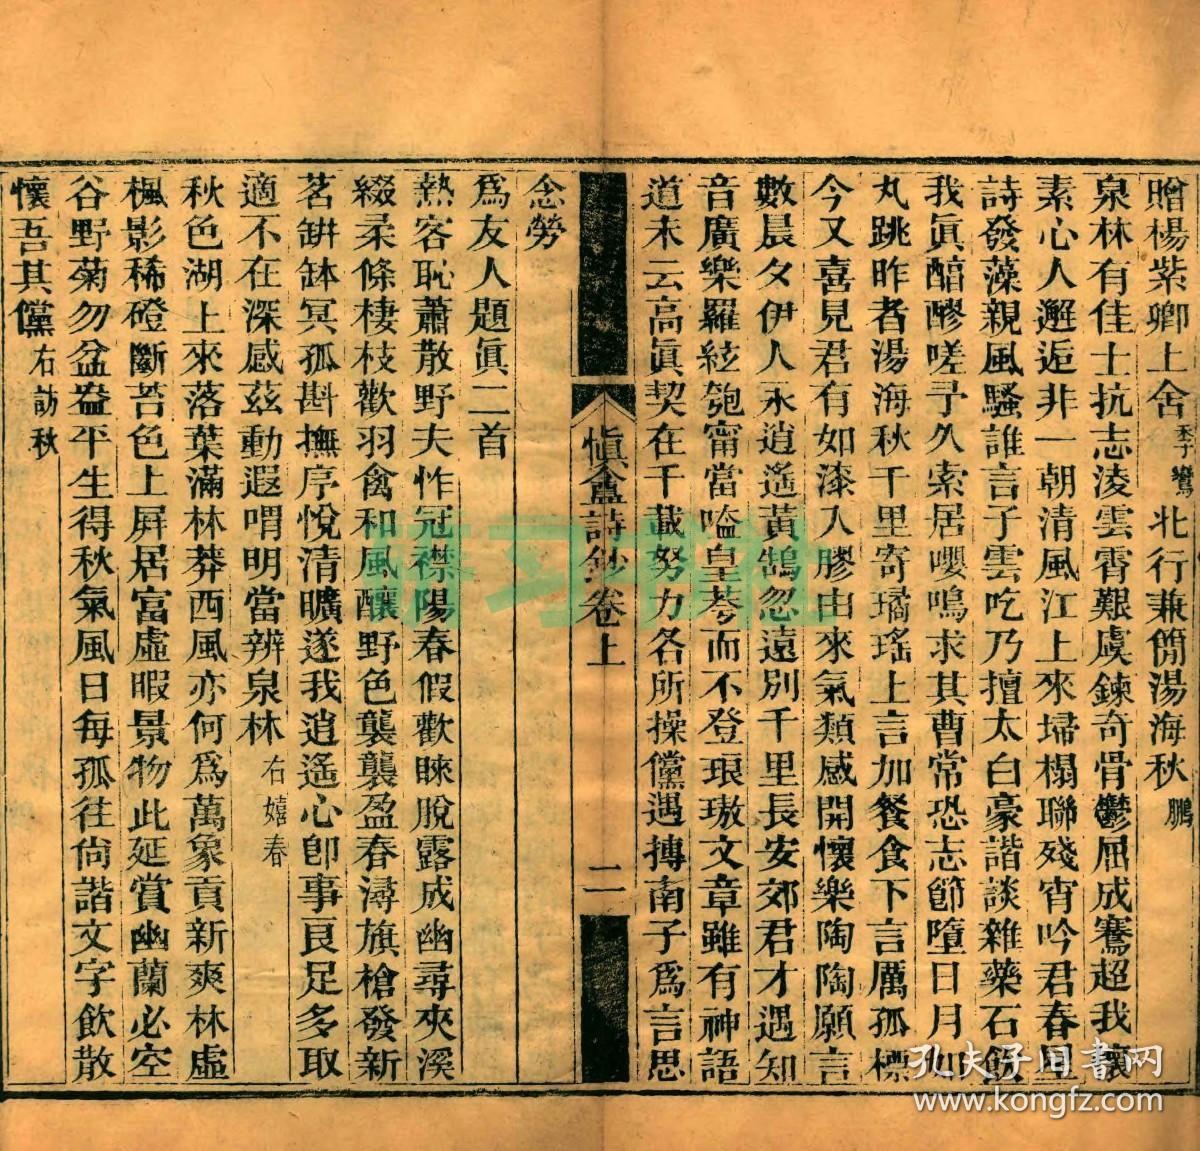 贈楊紫卿上舍季鸞北行兼簡湯海秋鵬
泉林有佳士抗志淩雲霄艱虞鍊奇骨鬱屈成騫超我懷
素心人邂逅非一朝清風江上來埽榻聯殘宵吟君春星
詩發藻親風騷誰言子雲吃乃擅太白豪諧談雜藥石飲
我眞醇醪嗟予久索居嚶鳴求其曹常恐志節墮日月如
丸跳昨者湯海秋千里寄璚瑤上言加餐食下言厲孤標
今又喜見君有如漆入膠由來氣類感開懷樂陶陶願言
數晨夕伊人永逍遙黃鵠忽遠別千里長安郊君才遇知
音廣樂羅絃匏甯當嗌皇荂而不登琅璈文章雖有神語
道未云高眞契在千載努力各所操儻遇摶南子爲言思
愼盦詩鈔卷上
二
念勞
爲友人題眞二首
熱客恥蕭散野夫怍冠襟陽春假歡睞脫露成幽尋夾溪
綴柔條棲枝歡羽禽和風釀野色襲襲盈春潯旗槍發新
茗缾缽冥孤斟撫序悅清曠遂我逍遙心卽事良足多取
適不在深感茲動遐喟明當辨泉林右嬉春
秋色湖上來落葉滿林莽西風亦何爲萬象貢新爽林虛
楓影稀磴斷苔色上屏居富虛暇景物此延賞幽蘭必空
谷野菊勿盆盎平生得秋氣風日每孤往尙諧文字飲散
懷吾其儻右訪秋
孔夫子旧書网
www.kongfz.com